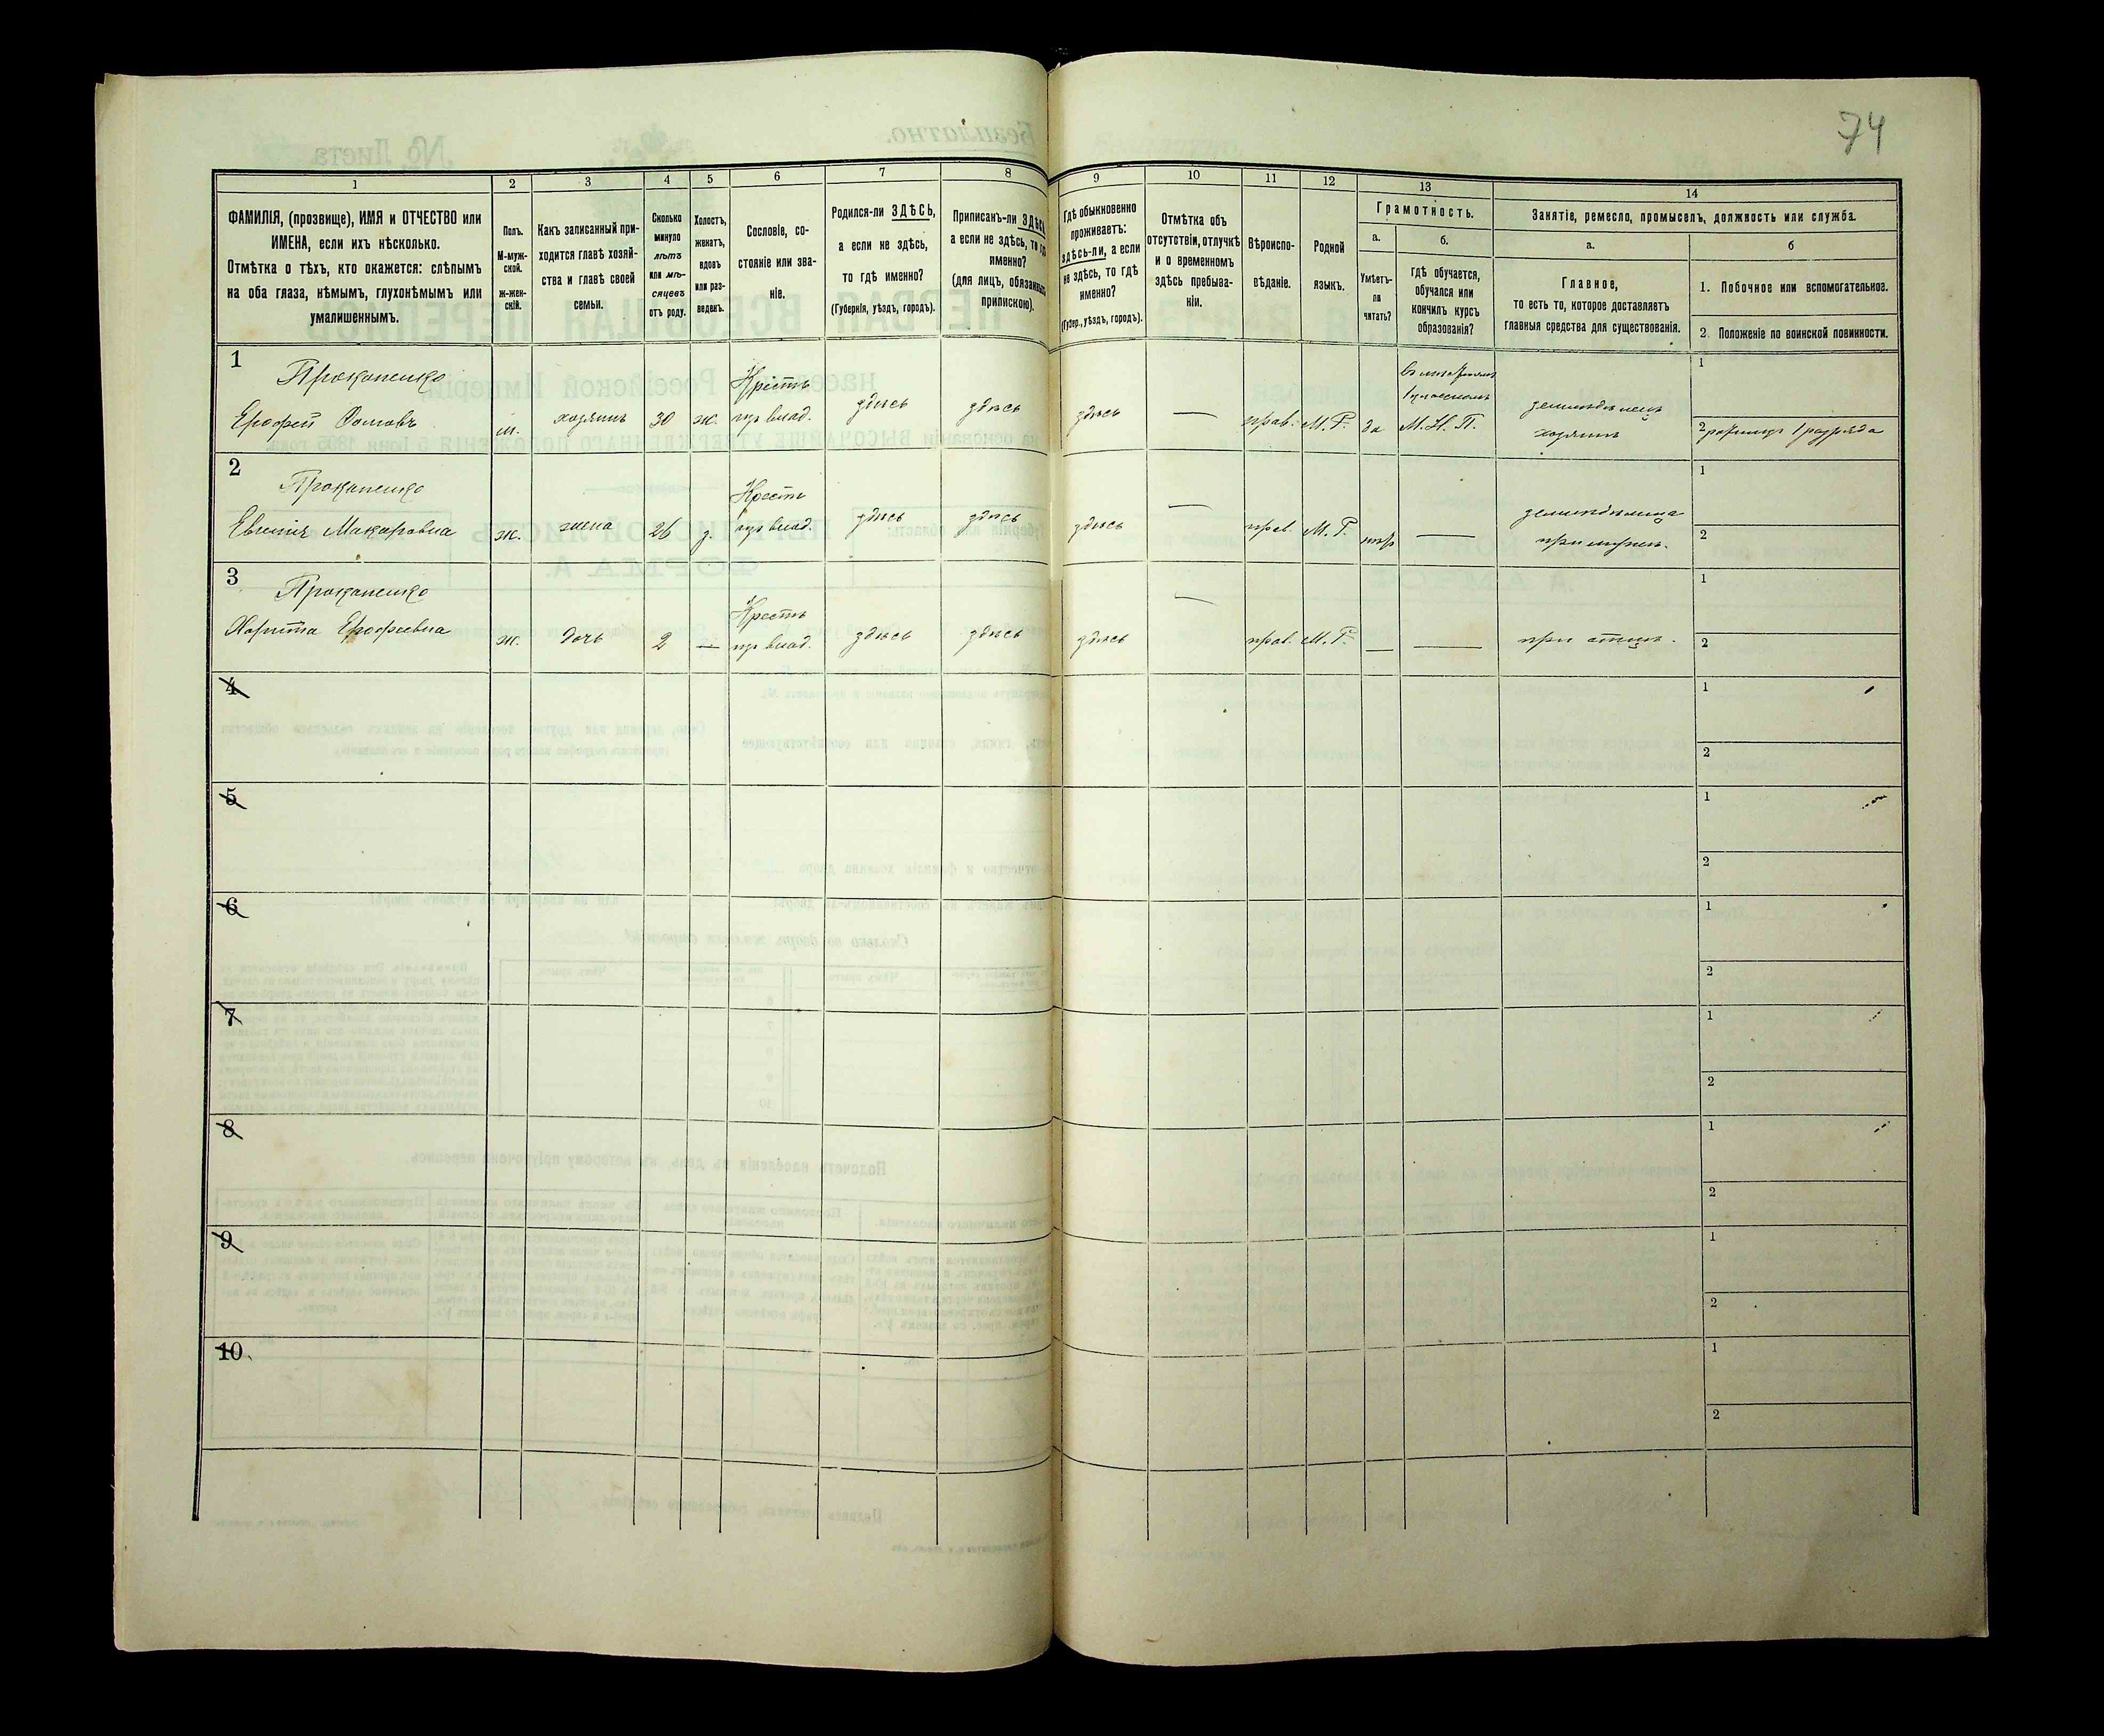 74
1
2
3
4
5
6
7
8
9
10
11
12
13
14
ФАМИЛІЯ, (прозвище), ИМЯ и ОТЧЕСТВО или
ИМЕНА, если ихъ нѣсколько.
Отмѣтка о тѣхъ, кто окажется: слѣпымъ
на оба глаза, нѣмымъ, глухонѣмымъ или
умалишеннымъ.
Полъ.
М-муж-
ской.
ж-жен-
скій.
Какъ записанный при-
ходится главѣ хозяй-
ства и главѣ своей
семьи.
Сколько
минуло
лѣтъ
или мѣ-
сяцевъ
отъ роду.
Холостъ,
женатъ,
вдовъ
или раз-
веденъ.
Сословіе, со-
стояніе или зва-
ніе.
Родился-ли ЗДѢСЬ,
а если не здѣсь,
то гдѣ именно?
(Губернія, уѣздъ, городъ).
Приписанъ-ли ЗДѢСЬ,
а если не здѣсь, то гдѣ
именно?
(для лицъ, обязанныхъ
припискою).
Гдѣ обыкновенно
проживаетъ:
здѣсь-ли, а если
не здѣсь, то гдѣ
именно?
(Губер., уѣздъ, городъ).
Отмѣтка объ
отсутствіи, отлучкѣ
и о временномъ
здѣсь пребыва-
ніи.
Вѣроиспо-
вѣданіе.
Родной
языкъ.
Грамотность.
а.
Умѣетъ-
ли
читать?
б.
гдѣ обучается,
обучался или
кончилъ курсъ
образованія?
Занятіе, ремесло, промыселъ, должность или служба.
а.
Главное,
то есть то, которое доставляетъ
главныя средства для существованія.
б
1. Побочное или вспомогательное.
2. Положеніе по воинской повинности.
1
Прокопенко
Ерофей Фомовъ
м.
хозяинъ
30
ж.
Крестъ
изъ влад.
здѣсь
здѣсь
здѣсь
—
прав.
М. Р.
да
1 классномъ
М. Н. П.
земледѣлецъ
хозяинъ
1
2 1 разряда
2
Прокопенко
Евгенія Макаровна
ж.
жена
26
з.
Крестъ
изъ влад.
здѣсь
здѣсь
здѣсь
—
прав.
М. Р.
—
земледѣлица
при мужѣ.
1
2
3
Прокопенко
Харита Ерофеевна
ж.
дочь
2
—
Крестъ
изъ влад.
здѣсь
здѣсь
здѣсь
—
прав.
М. Р.
—
—
при отцѣ.
1
2
4
1
2
5
1
2
6
1
2
7
1
2
8
1
2
9
1
2
10
1
2